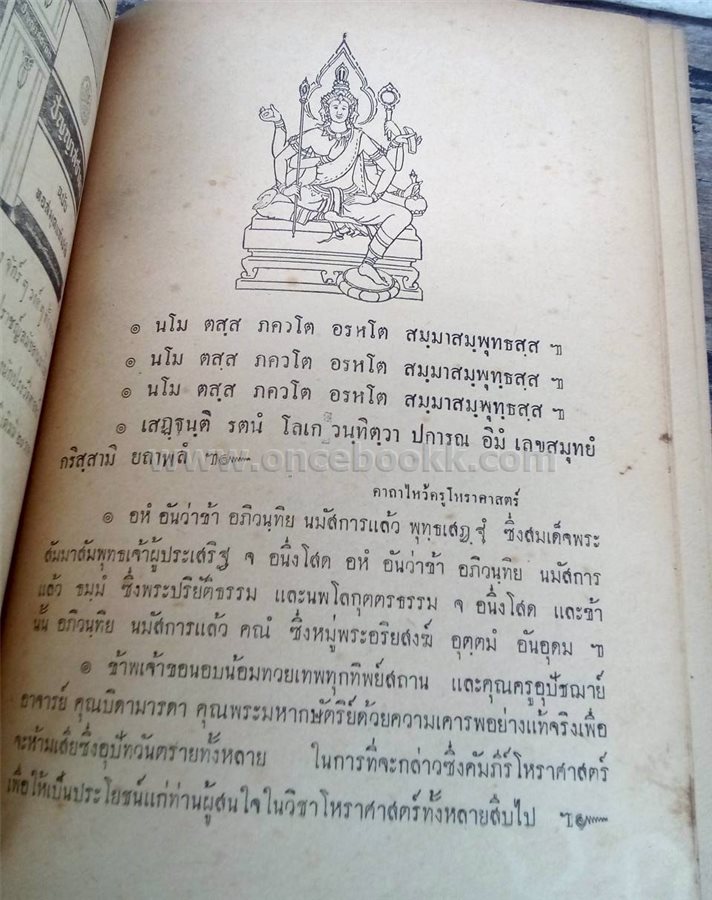 ๏ นโม ตสฺส ภควโต อรหโต สมฺมาสมฺพุทธสฺส ฯ
๏ นโม ตสฺส ภควโต อรหโต สมฺมาสมฺพุทฺธสฺส ฯ
๏ นโม ตสฺส ภควโต อรหโต สมฺมาสมฺพุทฺธสฺส ฯ
๏ เสฏฺฐนฺติ รตนํ โลเก วนฺทิตฺวา ปการณ อิมํ เลขสมุทยํ
กริสฺสามิ ยถาพลํ ฯ๛
www.oncebookk.com
คาถาไหว้ครูโหราศาสตร์
๏ อหํ อันว่าข้า อภิวนฺทิย นมัสการแล้ว พุทฺธเสฏฺฐํ ซึ่งสมเด็จพระ
สัมมาสัมพุทธเจ้าผู้ประเสริฐ จ อนึ่งโสด อหํ อันว่าข้า อภิวนฺทิย นมัสการ
แล้ว ธมฺมํ ซึ่งพระปริยัติธรรม และนพโลกุตตรธรรม จ อนึ่งโสด และข้า
นั้น อภิวนฺทิย นมัสการแล้ว คณํ ซึ่งหมู่พระอริยสงฆ์ อุตฺตมํ อันอุดม ฯ
๏ ข้าพเจ้าขอนอบน้อมทวยเทพทุกทิพย์สถาน และคุณครูอุปัชฌาย์
อาจารย์ คุณบิดามารดา คุณพระมหากษัตริย์ด้วยความเคารพอย่างแท้จริงเพื่อ
จะห้ามเสียซึ่งอุปัทวันตรายทั้งหลาย ในการที่จะกล่าวซึ่งคัมภีร์โหราศาสตร์
เพื่อให้เป็นประโยชน์แก่ท่านผู้สนใจในวิชาโหราศาสตร์ทั้งหลายสืบไป ฯ๛